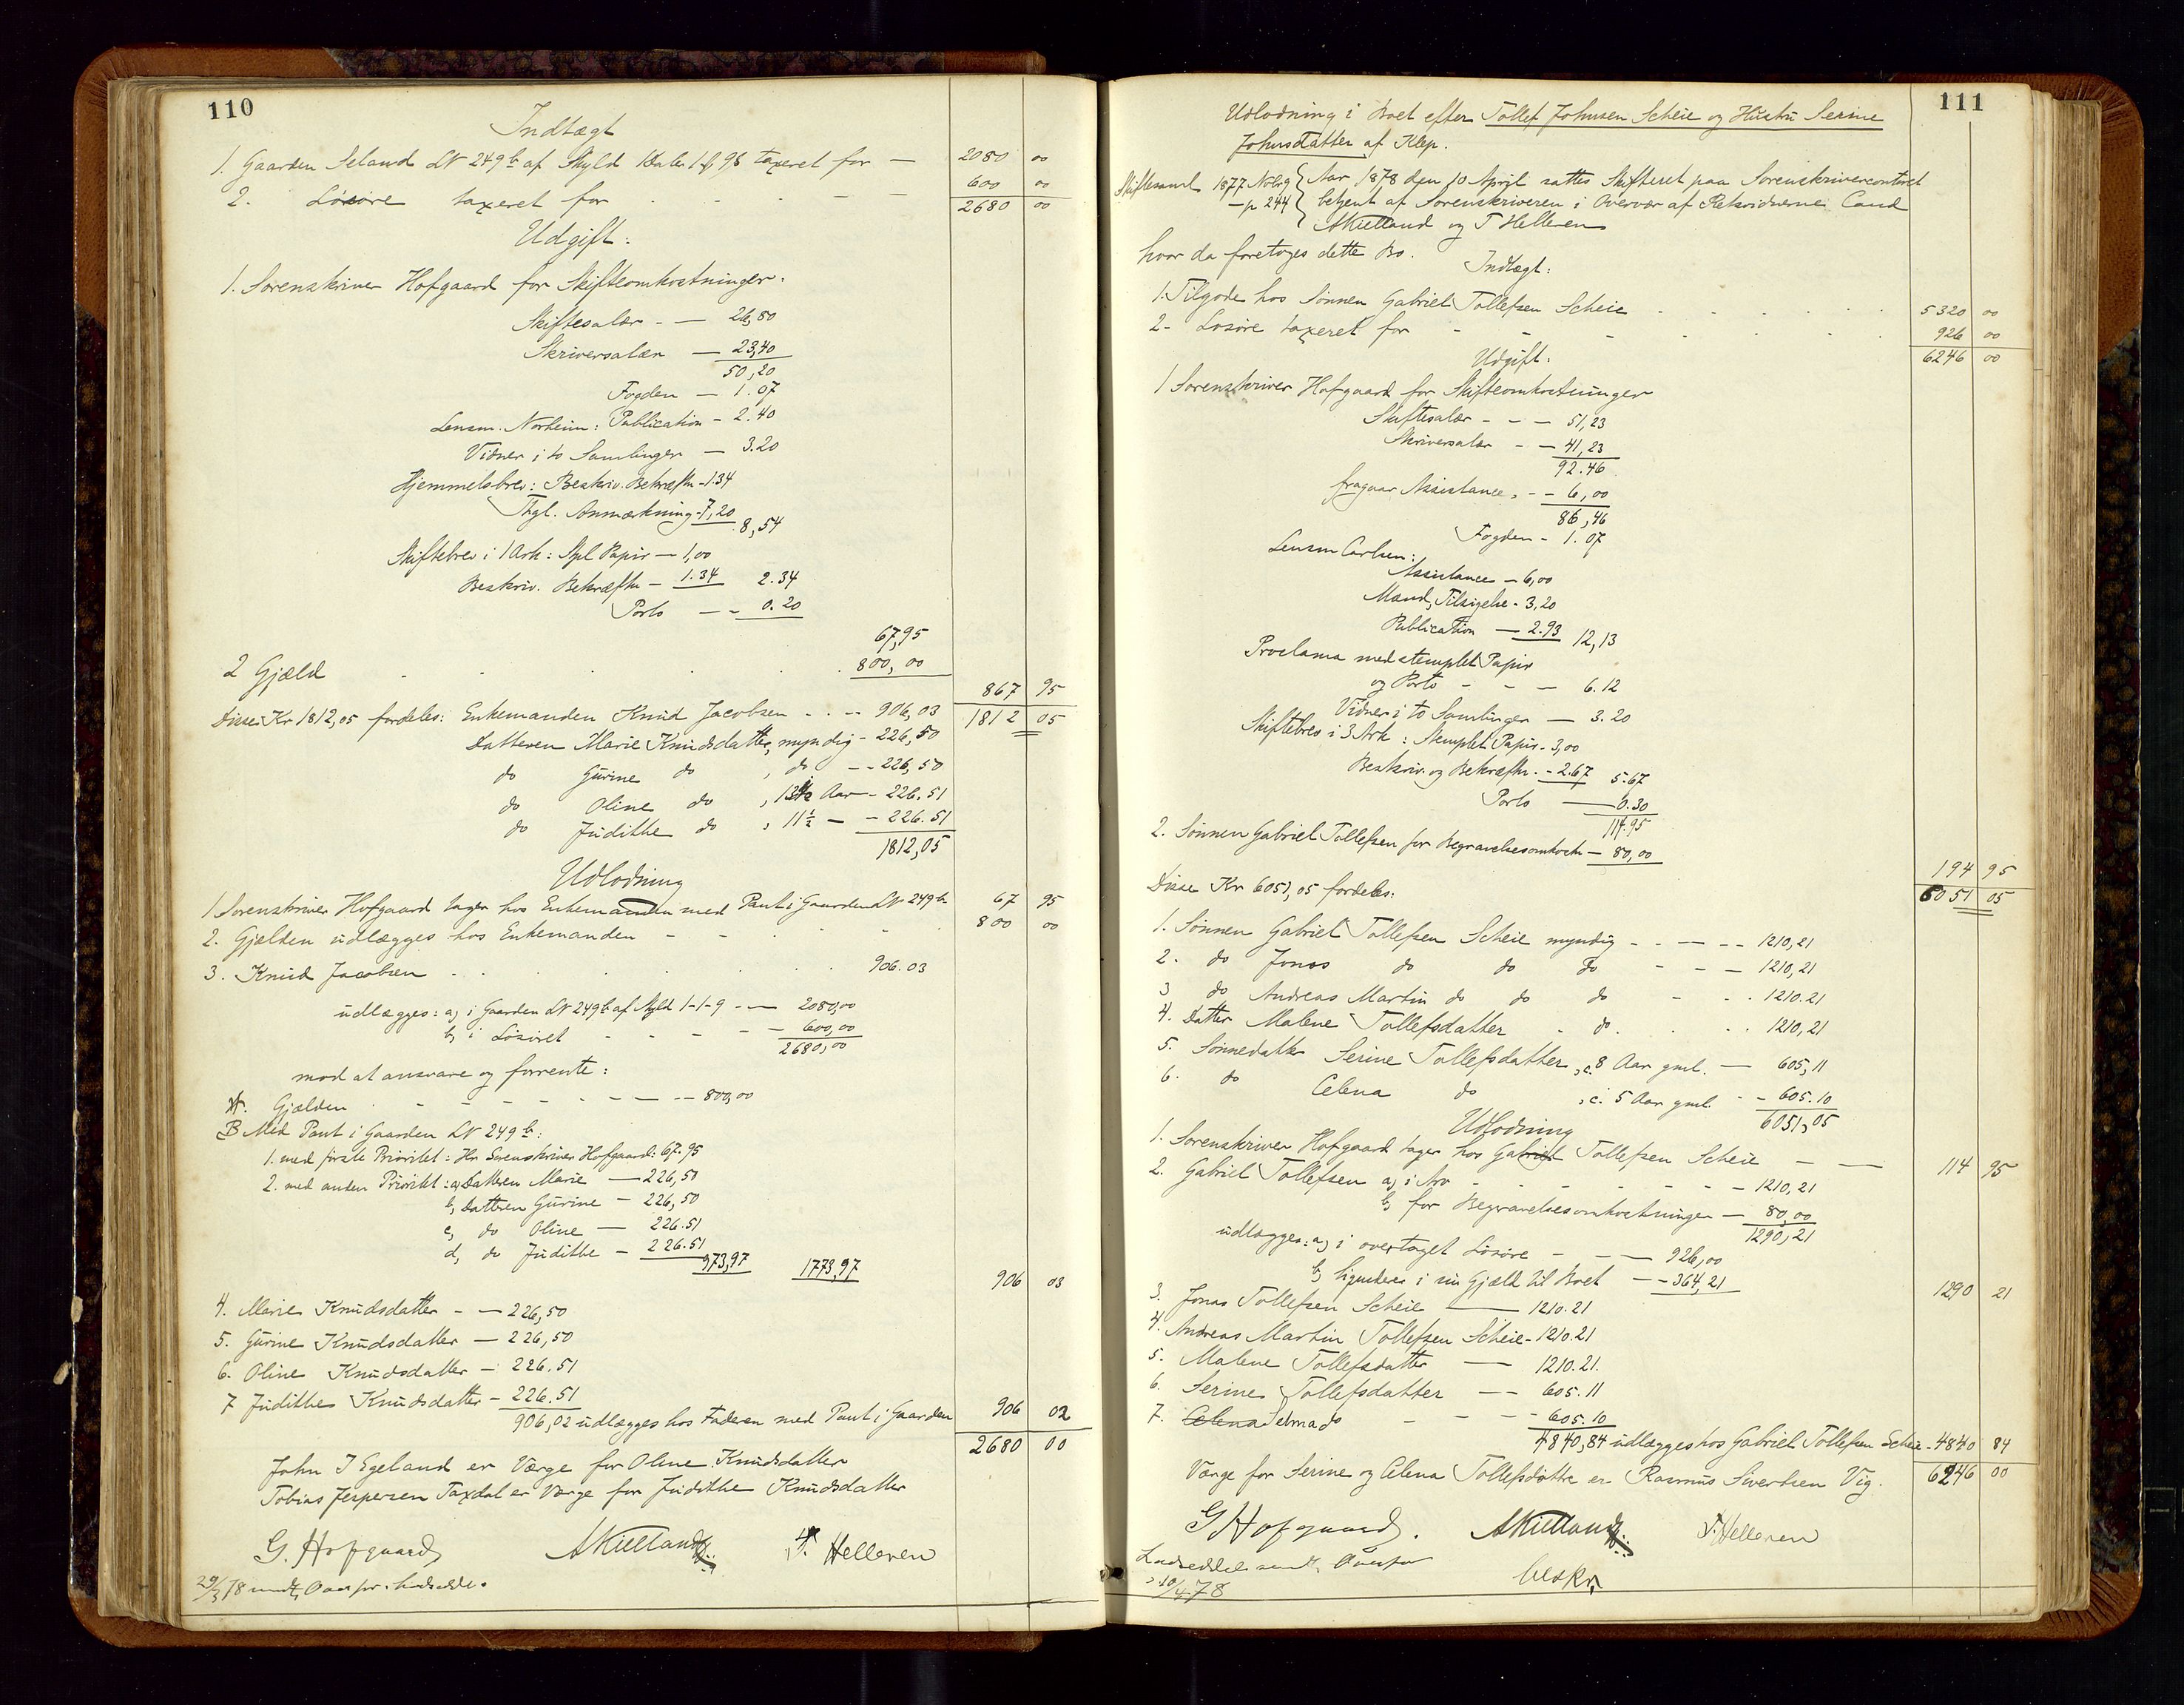 110
Indtægt
1. Gaarden Seland LN 249b af Skyld 1 Daler 1 ₰ 9 s taxeret for — 2080 00
2. Løsøre taxeret for — 600 00
2680 00
Udgift:
1. Sorenskriver Hofgaard for Skifteomkostninger.
Skiftesalær - — 26,80
Skriversalær — 23,40
50,20
Fogden — 1.07
Lensm. Norheim: Publication - 2.40
Vidner i to Samlinger — 3.20
Hjemmelsbrev: Beskriv. Bekræftn - 1.34
Thgl. Anmærkning - 7,20 8,54
Skiftebrev i 1 Ark: Stpl Papir — 1,00
Beskriv. Bekræftn - 1.34 2.34
Porto — - 0.20
67,95
2 Gjæld 800,00
867 95
Disse Kr 1812,05 fordeles: Enkemanden Knud Jacobsen - - - 906,03 1812 05
Datteren Marie Knudsdatter, myndig - 226,50
do Gurine do , do - - 226,50
do Oline do , 13½ Aar - 226.51
do Judithe do , 11½ — - 226.51
1812,05
Udlodning
1 Sorenskriver Hofgaard tager hos Enkemanden med Pant i Gaarden LN 249b 67 95
2. Gjælden udlægges hos Enkemanden - - 800 00
3. Knud Jacobsen 906.03
udlægges: a, i Gaarden LN 249b af Skyld 1-1-9 - — 2080,00
b, i Løsøret - - - - 600,00
2680,00
mod at ansvare og forrente:
A. Gjælden - - - - - — — -- 800,00
B Med Pant i Gaarden LN 249b:
1. med første Prioritet: Hr Sorenskriver Hofgaard: 67.95
2. med anden Prioritet: a, Datteren Marie — 226,50
b, Datteren Gurine — 226,50
c, do Oline — 226.51
d, do Judithe — 226.51 973,97 1773,97
906 03
4. Marie Knudsdatter - — 226,50
5. Gurine Knudsdatter — 226,50
6. Oline Knudsdatter — 226.51
7 Judithe Knudsdatter - 226.51
906,02 udlægges hos Faderen med Pant i Gaarden 906 02
2680 00
John J Egeland er Værge for Oline Knudsdatter
Tobias Jespersen Taxdal er Værge for Judithe Knudsdatter
G. Hofgaard AKielland T. Helleren
29/3 78 sendt Overfor. Lodsedde.
111
Udlodning i Boet efter Tollef Johnsen Scheie og Hustru Serine
Johnsdatter af Klep.
Skiftesaml 1877 Nobg
- p 244
Aar 1878 den 10 April sattes Skifteret paa Sorenskrivercontoret
betjent af Sorenskriveren i Overvær af Retsvidnerne Cand
AKielland og T Helleren
hvor da foretoges dette Bo.
Indtægt:
1. Tilgode hos Sønnen Gabriel Tollefsen Scheie 5320 00
2- Løsøre taxeret for - - - 926 00
6246 00
Udgift:
1 Sorenskriver Hofgaard for Skifteomkostninger
Skiftesalær - - — 51,23
Skriversalær - — 41,23
92.46
fragaar Assistance, - - 6,00
86,46
Fogden - 1.07
Lensm Carlsen:
Assistance - 6,00
Mænd, Tilsigelse - 3,20
Publication — 2.93 12,13
Proclama med stemplet Papir
og Porto - - — 6.12
Vidner i to Samlinger — 3.20
Skiftebrev i 3 Ark: Stemplet Papir - 3,00
Beskriv. og Bekræftn. - 2.67 5.67
Porto — 0.30
114.95
2. Sønnen Gabriel Tollefsen for Begravelsesomkostn - 80,00
194 95
Disse Kr 6051,05 fordeles: 6051 05
1. Sønnen Gabriel Tollefsen Scheie myndig - - — - - 1210,21
2. do Jonas do do do - - — 1210,21
3 do Andreas Martin do do do - - . 1210.21
4. Datter Malene Tollefsdatter - do. . . . 1210,21
5. Sønnedatter Serine Tollefsdatter, c. 8 Aar gml. — 605,11
6. do Celena do , c. 5 Aar gml. - - 605.10
6051,05
Udlodning
1. Sorenskriver Hofgaard tager hos Gabriel Tollefsen Scheie — — 114 95
2. Gabriel Tollefsen a, i Arv - - - - - — 1210,21
b, for Begravelsesomkostninger — 80,00
1290,21
udlægges: a, i overtaget Løsøre - - — 926,00
b, liqviderer i sin Gjæld til Boet — - 364,21
1290 21
3. Jonas Tollefsen Scheie — 1210.21
4. Andreas Martin Tollefsen Scheie - 1210.21
5. Malene Tollefsdatter — 1210.21.
6. Serine Tollefsdatter — - 605.11
7. Celena Selma do - - - - 605.10
4840,84 udlægges hos Gabriel Tollefsen Scheie - 4840 84
Værge for Serine og Celena Tollefsdøtre er Rasmus Sivertsen Vig. 6246 00
G Hofgaard. AKielland T. Helleren
Lodseddel sendt. Overfor
10/4 78 beskr.